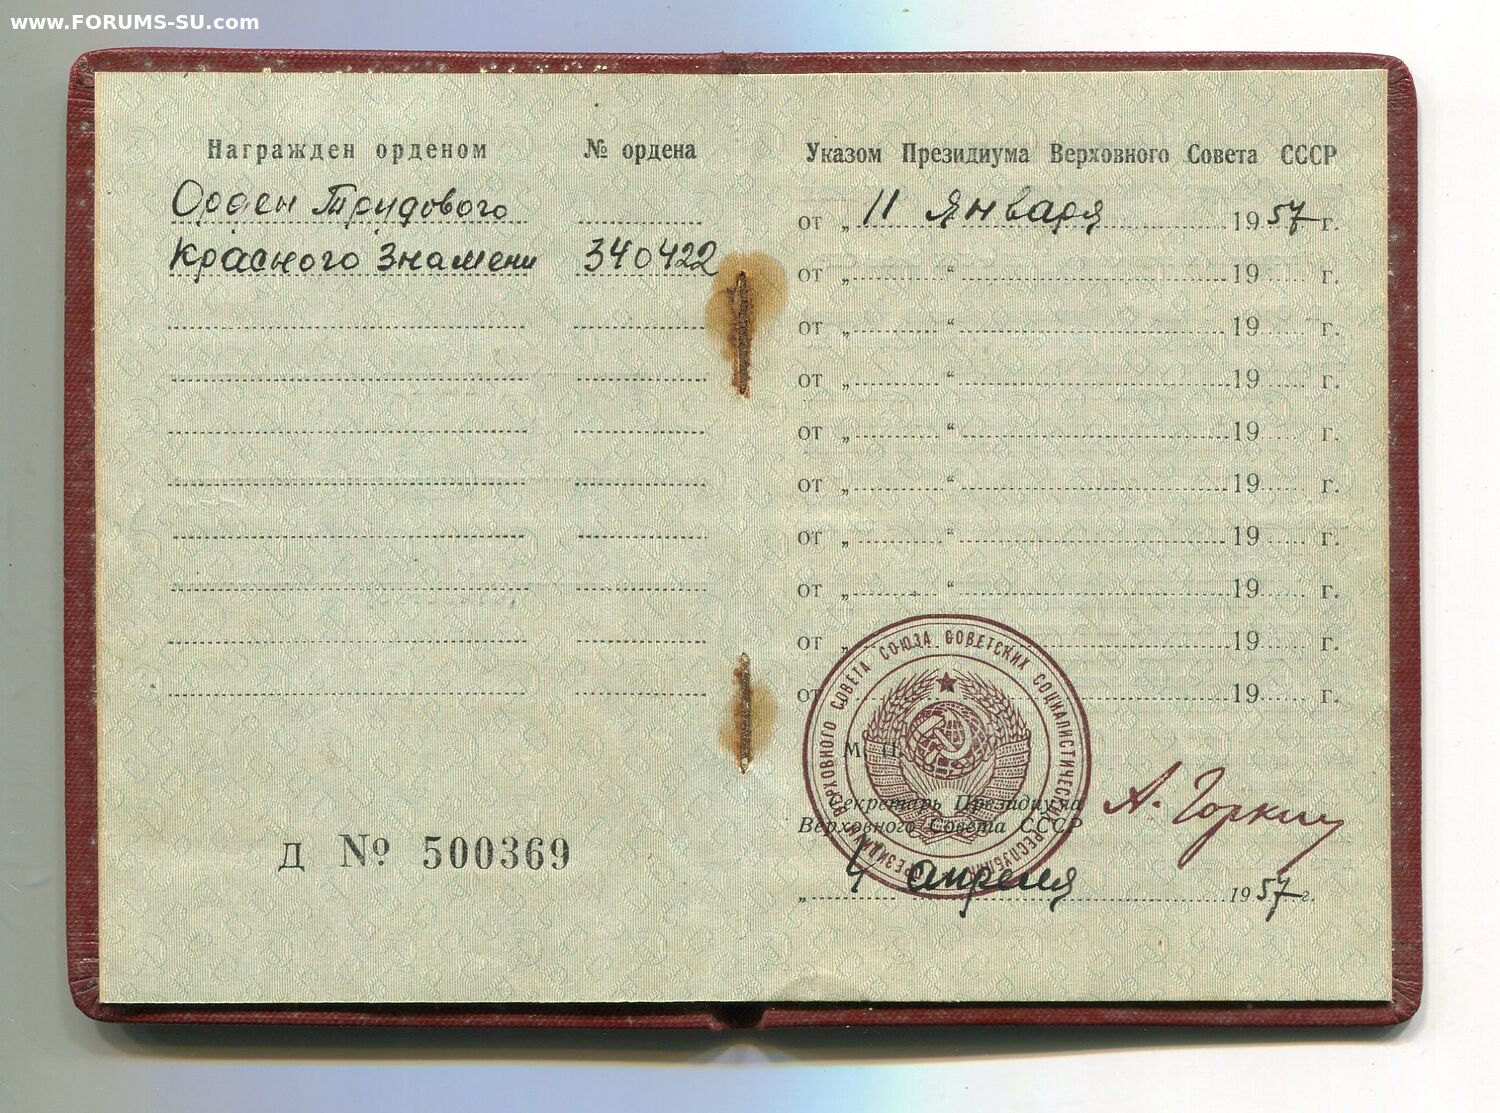 www.FORUMS-SU.com
Награжден орденом № ордена
Орден Трудового
Красного Знамени 340422
Д № 500369
Указом Президиума Верховного Совета СССР
от „ 11 Января 1957 г.
от „ “ 19 г.
от „ “ 19 г.
от „ “ 19 г.
от „ “ 19 г.
от „ “ 19 г.
от „ “ 19 г.
от „ “ 19 г.
от „ 19 г.
от 19 г.
М. П.
ПРЕЗИДИУМ ВЕРХОВНОГО СОВЕТА СОЮЗА СОВЕТСКИХ СОЦИАЛИСТИЧЕСКИХ РЕСПУБЛИК
Секретарь Президиума
Верховного Совета СССР
А. Горкин
„ 4 апреля 1957 г.